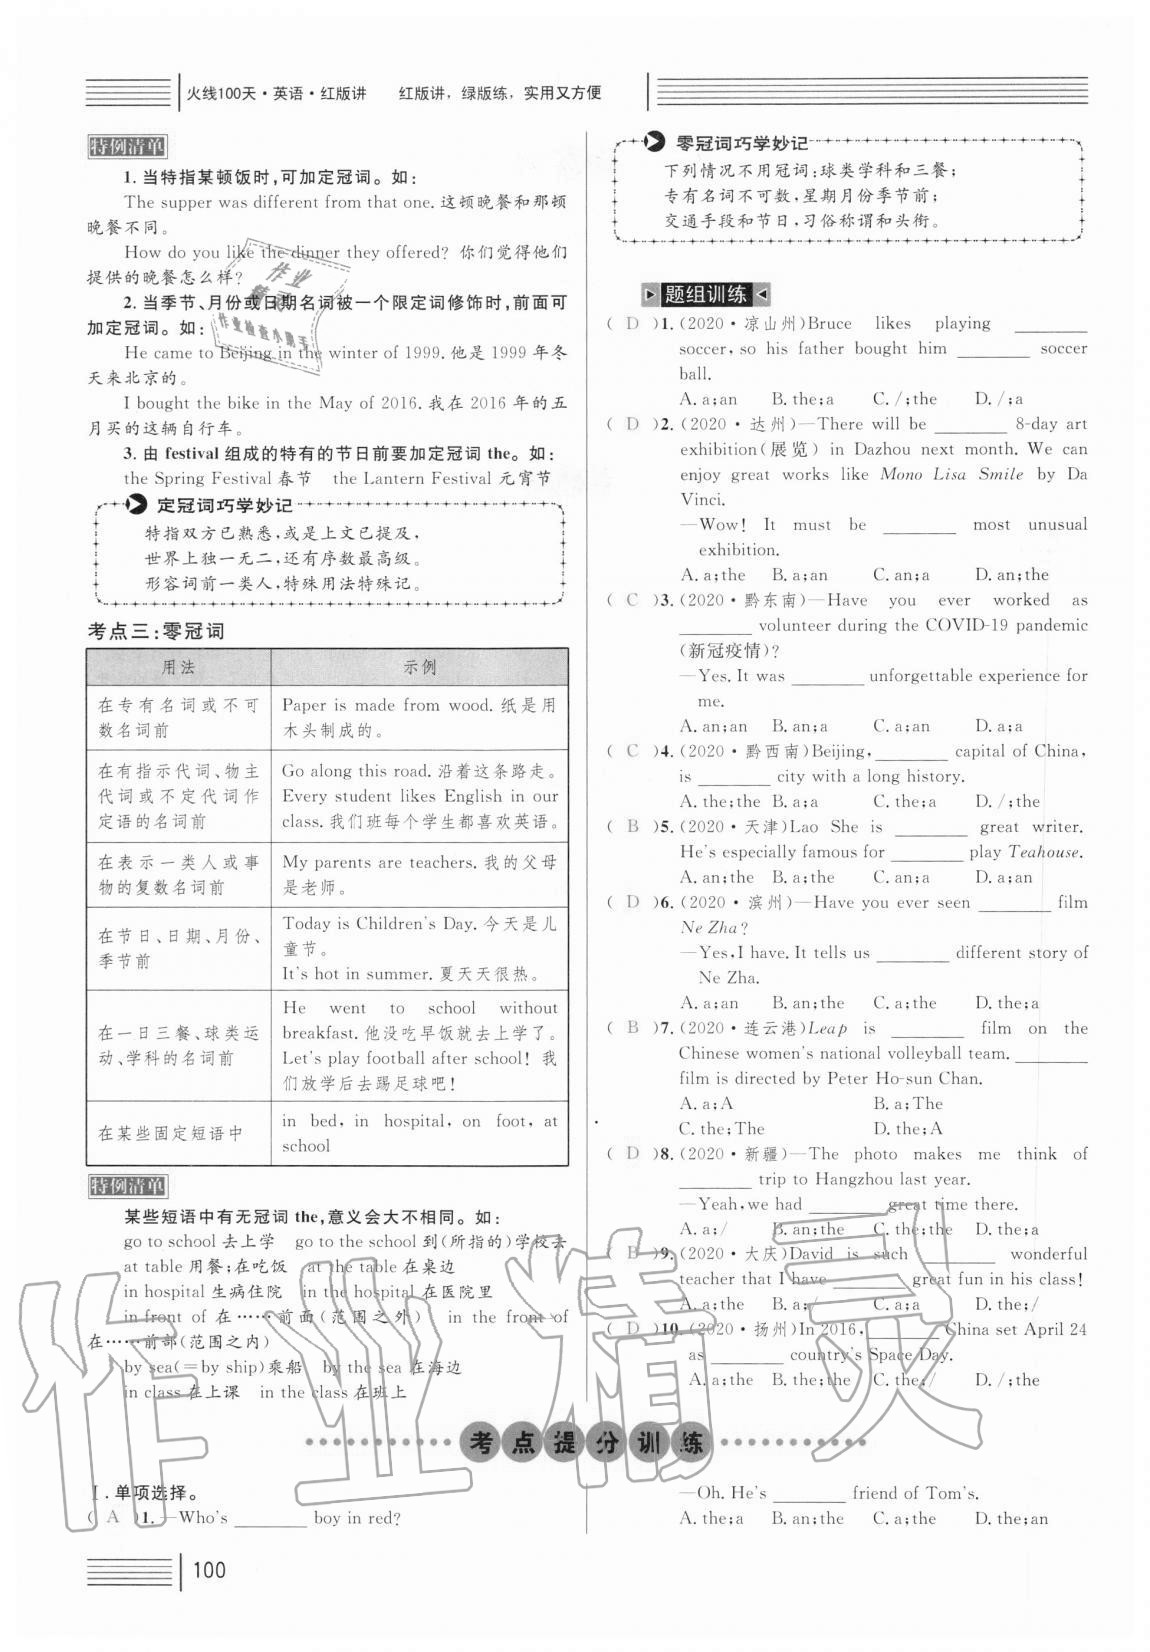 火线100天·英语·红版讲 红版讲，绿版练，实用又方便
特例清单
1. 当特指某顿饭时，可加定冠词。如：
The supper was different from that one. 这顿晚餐和那顿
晚餐不同。
How do you like the dinner they offered? 你们觉得他们
提供的晚餐怎么样？
2. 当季节、月份或日期名词被一个限定词修饰时，前面可
加定冠词。如：
He came to Beijing in the winter of 1999. 他是 1999 年冬
天来北京的。
I bought the bike in the May of 2016. 我在 2016 年的五
月买的这辆自行车。
3. 由 festival 组成的特有的节日前要加定冠词 the。如：
the Spring Festival 春节 the Lantern Festival 元宵节
定冠词巧学妙记
特指双方已熟悉，或是上文已提及，
世界上独一无二，还有序数最高级。
形容词前一类人，特殊用法特殊记。
考点三：零冠词
用法 示例
在专有名词或不可
数名词前
Paper is made from wood. 纸是用
木头制成的。
在有指示代词、物主
代词或不定代词作
定语的名词前
Go along this road. 沿着这条路走。
Every student likes English in our
class. 我们班每个学生都喜欢英语。
在表示一类人或事
物的复数名词前
My parents are teachers. 我的父母
是老师。
在节日、日期、月份、
季节前
Today is Children's Day. 今天是儿
童节。
It's hot in summer. 夏天天很热。
在一日三餐、球类运
动、学科的名词前
He went to school without
breakfast. 他没吃早饭就去上学了。
Let's play football after school! 我
们放学后去踢足球吧！
在某些固定短语中
in bed, in hospital, on foot, at
school
特例清单
某些短语中有无冠词 the，意义会大不相同。如：
go to school 去上学 go to the school 到(所指的)学校去
at table 用餐；在吃饭 at the table 在桌边
in hospital 生病住院 in the hospital 在医院里
in front of 在……前面(范围之外) in the front of
在……前部(范围之内)
by sea(=by ship)乘船 by the sea 在海边
in class 在上课 in the class 在班上
零冠词巧学妙记
下列情况不用冠词：球类学科和三餐；
专有名词不可数，星期月份季节前；
交通手段和节日，习俗称谓和头衔。
题组训练
( D )1. (2020·凉山州)Bruce likes playing ________
soccer, so his father bought him ________ soccer
ball.
A. a;an B. the;a C. /;the D. /;a
( D )2. (2020·达州)—There will be ________ 8-day art
exhibition(展览) in Dazhou next month. We can
enjoy great works like Mono Lisa Smile by Da
Vinci.
—Wow! It must be ________ most unusual
exhibition.
A. a;the B. a;an C. an;a D. an;the
( C )3. (2020·黔东南)—Have you ever worked as
________ volunteer during the COVID-19 pandemic
(新冠疫情)?
—Yes. It was ________ unforgettable experience for
me.
A. an;an B. an;a C. a;an D. a;a
( C )4. (2020·黔西南)Beijing, ________ capital of China,
is ________ city with a long history.
A. the;the B. a;a C. the;a D. /;the
( B )5. (2020·天津)Lao She is ________ great writer.
He's especially famous for ________ play Teahouse.
A. an;the B. a;the C. an;a D. a;an
( D )6. (2020·滨州)—Have you ever seen ________ film
Ne Zha?
—Yes, I have. It tells us ________ different story of
Ne Zha.
A. a;an B. an;the C. a;the D. the;a
( B )7. (2020·连云港)Leap is ________ film on the
Chinese women's national volleyball team. ________
film is directed by Peter Ho-sun Chan.
A. a;A B. a;The
C. the;The D. the;A
( D )8. (2020·新疆)—The photo makes me think of
________ trip to Hangzhou last year.
—Yeah, we had ________ great time there.
A. a;/ B. an;the C. the;the D. the;a
( B )9. (2020·大庆)David is such ________ wonderful
teacher that I have ________ great fun in his class!
A. the;a B. a;/ C. a;a D. the;/
( D )10. (2020·扬州)In 2016, ________ China set April 24
as ________ country's Space Day.
A. the;a B. the;the C. the;/ D. /;the
考点提分训练
Ⅰ. 单项选择。
( A )1. —Who's ________ boy in red?
—Oh. He's ________ friend of Tom's.
A. the;a B. a;the C. a;the D. the;an
100
作业精灵
作业
精灵
作业检查小助手